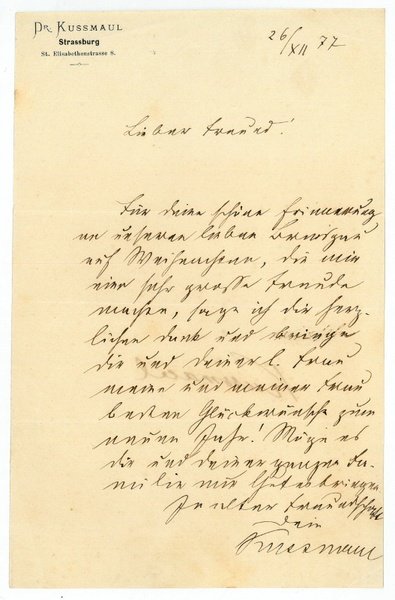 DR. KUSSMAUL
Strassburg
St. Elisabethenstrasse 8.
26/XII 77
Lieber Freund!
Für deine schöne Erinnerung
an unseren lieben Breisgau
auf Weihnachten, die mir
eine sehr grosse Freude
machte, sage ich dir herz-
lichen Dank und bringe
dir und deiner l. Frau
meine und meiner Frau
besten Glückwünsche zum
neuen Jahr! Möge es
dir und deiner ganzen Fa-
milie nur Gutes bringen
In alter Freundschaft
Dein
Kussmaul